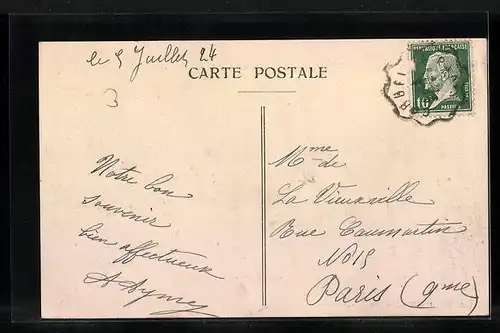 le 5 Juillet 24
CARTE POSTALE
REPUBLIQUE FRANÇAISE
10
3
Notre bon
souvenir
bien affectueux
A Aymey
Mme de
La Vieuxville
Rue Caumartin
No 15
Paris (9me)